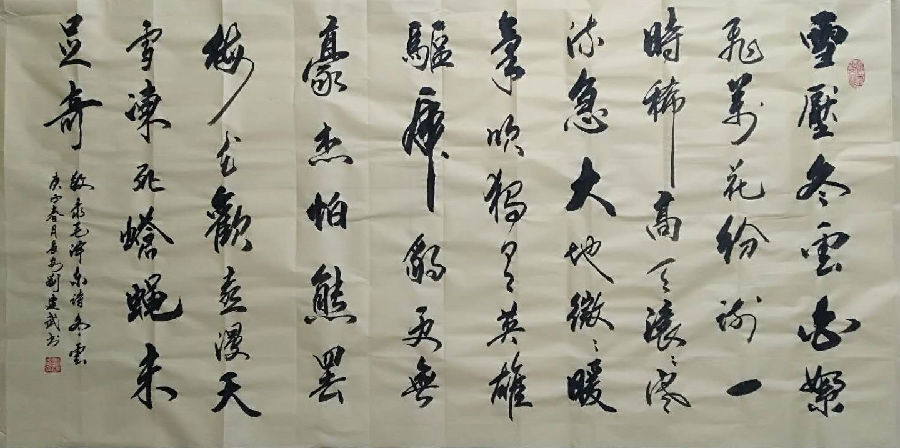 雪壓冬雲白絮
飛萬花紛謝一
時稀高天滾〻寒
流急大地微〻暖
氣吹獨有英雄
驅虎豹更無
豪杰怕熊罴
梅花歡喜漫天
雪凍死螥蝇未
足奇
敬录毛澤東詩冬雲
庚子春月長安劉建武书